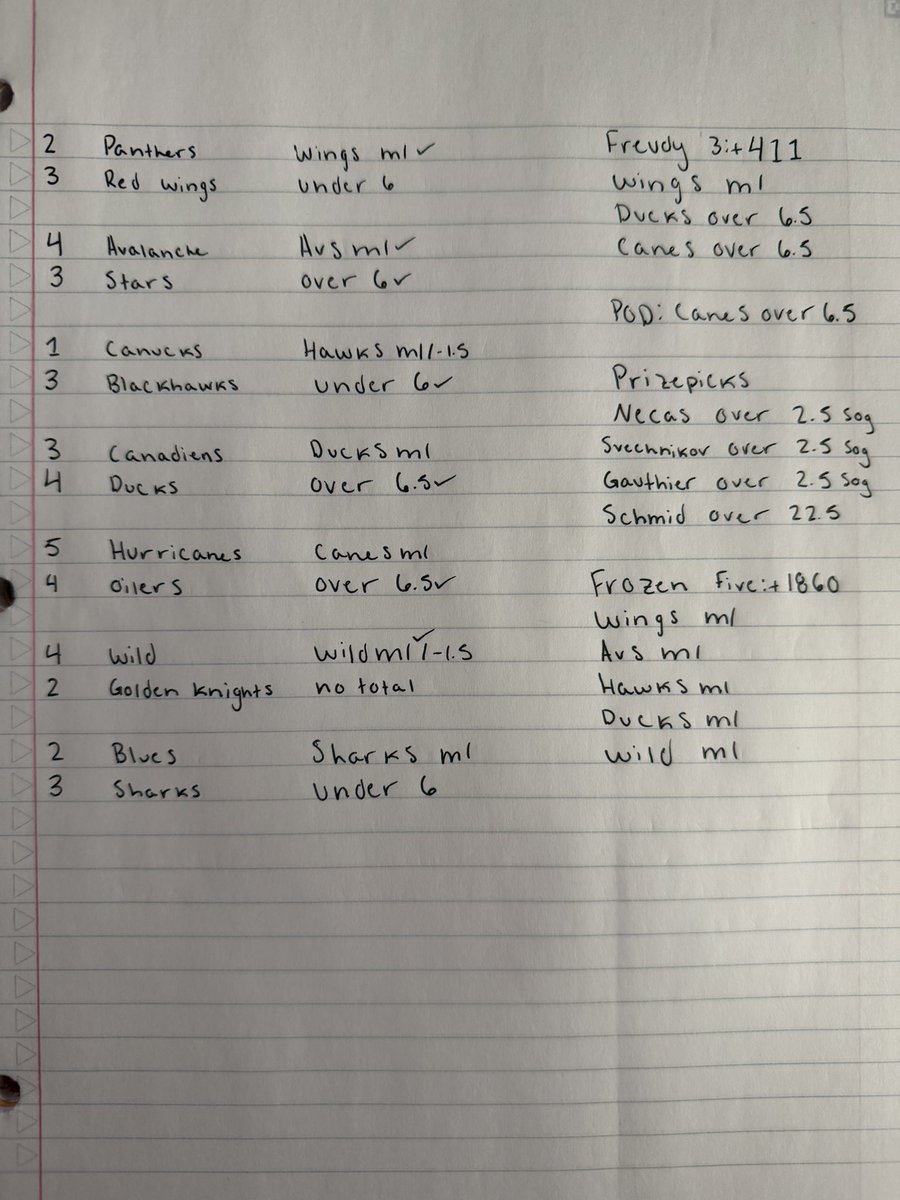 2 Panthers Wings ml ✓ Freudy 3:+411
3 Red wings under 6 Wings ml
Ducks over 6.5
4 Avalanche Avs ml ✓ Canes over 6.5
3 Stars over 6 ✓
POD: Canes over 6.5
1 Canucks Hawks ml/-1.5
3 Blackhawks under 6 ✓ Prizepicks
Necas over 2.5 Sog
3 Canadiens Ducks ml Svechnikov over 2.5 Sog
4 Ducks over 6.5 ✓ Gauthier over 2.5 Sog
Schmid over 22.5
5 Hurricanes Canes ml
4 Oilers over 6.5 ✓ Frozen Five:+1860
Wings ml
4 Wild Wild ml ✓/-1.5 Avs ml
2 Golden Knights no total Hawks ml
Ducks ml
2 Blues Sharks ml Wild ml
3 Sharks under 6